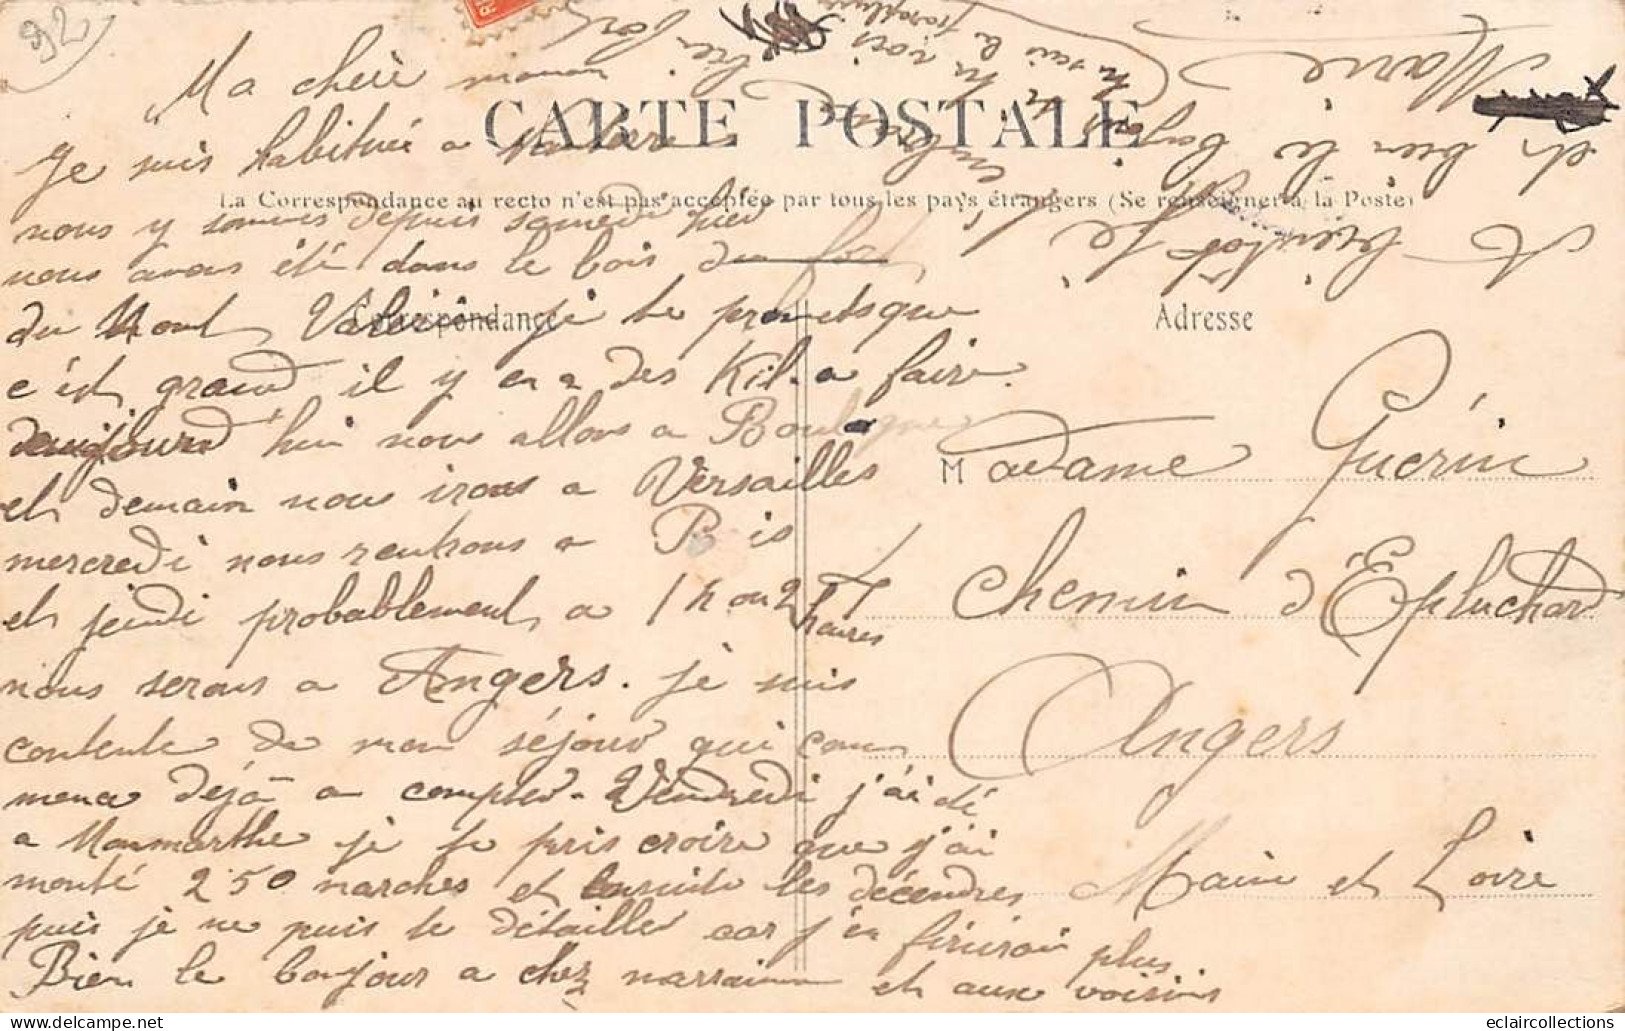 92
Ma chère maman
CARTE POSTALE
Je suis habituée a
La Correspondance au recto n'est pas acceptée par tous les pays étrangers (Se renseigner à la Poste)
nous y sommes depuis samedi hier
nous avons été dans le bois du
du Mont Valérien je te promets que
Correspondance
c'est grand il y en a des Kil. a faire.
aujourd'hui nous allons a Boulogne
et demain nous irons a Versailles
mercredi nous rentrons a
et jeudi probablement a 1 h ou 2 heures
nous serons a Angers. je suis
contente de mon séjour qui com
mence déjà a compter. Vendredi j'ai été
a Monmarthe je te pris croire que j'ai
monté 250 marches et ensuite les décendres
puis je ne puis te détailler car j'en finirai plus
Bien le bonjour a chez et aux voisins
Adresse
Madame Guérin
Chemin d'Epluchard
Angers
Maine et Loire
A bientôt je
et bien le bonjour
Marie
bien fort
eclaircollections